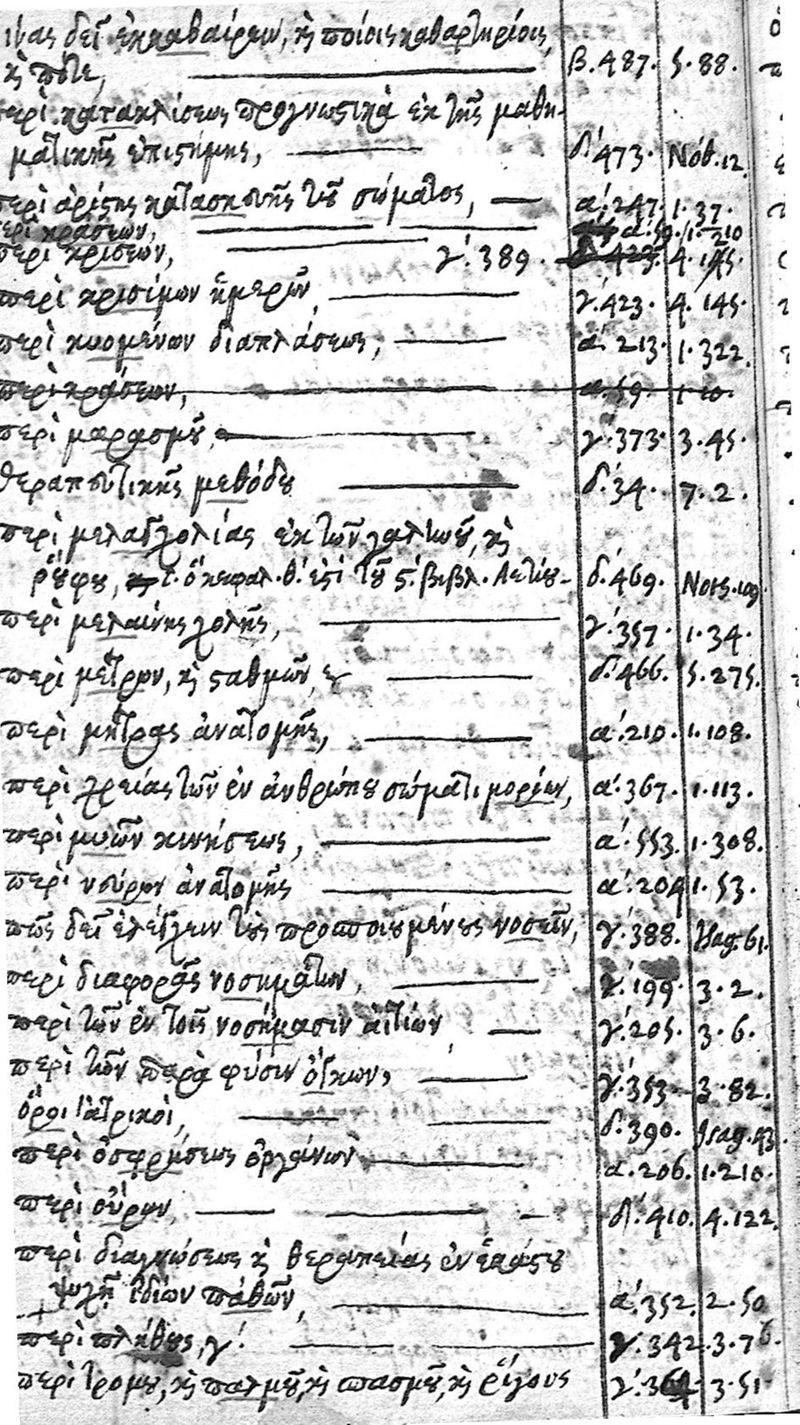 δεῖ ἐκκαθαίρειν, κ̀ ποίοις καθαρτηρίοις,
κ̀ πότε, β. 487. 5. 88.
περὶ κατακλίσεως προγνωστικὰ ἐκ τῆς μαθη-
ματικῆς ἐπιστήμης, δ. 473. Nób. 12.
περὶ ἀρίστης κατασκευῆς τοῦ σώματος, α. 247. 1. 37.
περὶ κράσεων, α. 59. 1. 210
περὶ κρίσεων, γ. 389. 4. 145.
περὶ κρισίμων ἡμερῶν, γ. 423. 4. 145.
περὶ κυομένων διαπλάσεως, α. 213. 1. 322.
περὶ κράσεων, α. 59. 1. 10.
περὶ μαρασμοῦ, γ. 373. 3. 45.
θεραπευτικῆς μεθόδου δ. 34. 7. 2.
περὶ μελαγχολίας ἐκ τῶν γαληνοῦ, κ̀
ῥούφου, ὁ κεφαλ. θ. ἐστὶ τοῦ ς. βιβλ. Ἀετίου - δ. 469.
περὶ μελαίνης χολῆς, γ. 357. 1. 34.
περὶ μέτρων, κ̀ σταθμῶν, δ. 466. 5. 275.
περὶ μήτρας ἀνατομῆς, α. 210. 1. 108.
περὶ χρείας τῶν ἐν ἀνθρώπου σώματι μορίων, α. 367. 1. 113.
περὶ μυῶν κινήσεως, α. 553. 1. 308.
περὶ νεύρων ἀνατομῆς α. 204 1. 53.
πῶς δεῖ ἐλέγχειν τοὺς προσποιουμένους νοσεῖν, γ. 388. Isag. 61.
περὶ διαφορᾶς νοσημάτων, γ. 199. 3. 2.
περὶ τῶν ἐν τοῖς νοσήμασιν αἰτίων γ. 205. 3. 6.
περὶ τῶν παρὰ φύσιν ὄγκων, γ. 353 3. 82.
ὅροι ἰατρικοὶ, δ. 390. Isag. 43.
περὶ ὀσφρήσεως ὀργάνων α. 206. 1. 210.
περὶ οὔρων, δ. 410. 4. 122.
περὶ διαγνώσεως κ̀ θεραπείας ἐν ἑκάστου
ψυχῇ ἰδίων παθῶν, α. 352. 2. 50
περὶ πλήθους, γ. 342. 3. 76.
περὶ τρόμου, κ̀ παλμοῦ, κ̀ σπασμοῦ, κ̀ ῥίγους γ. 364 3. 51